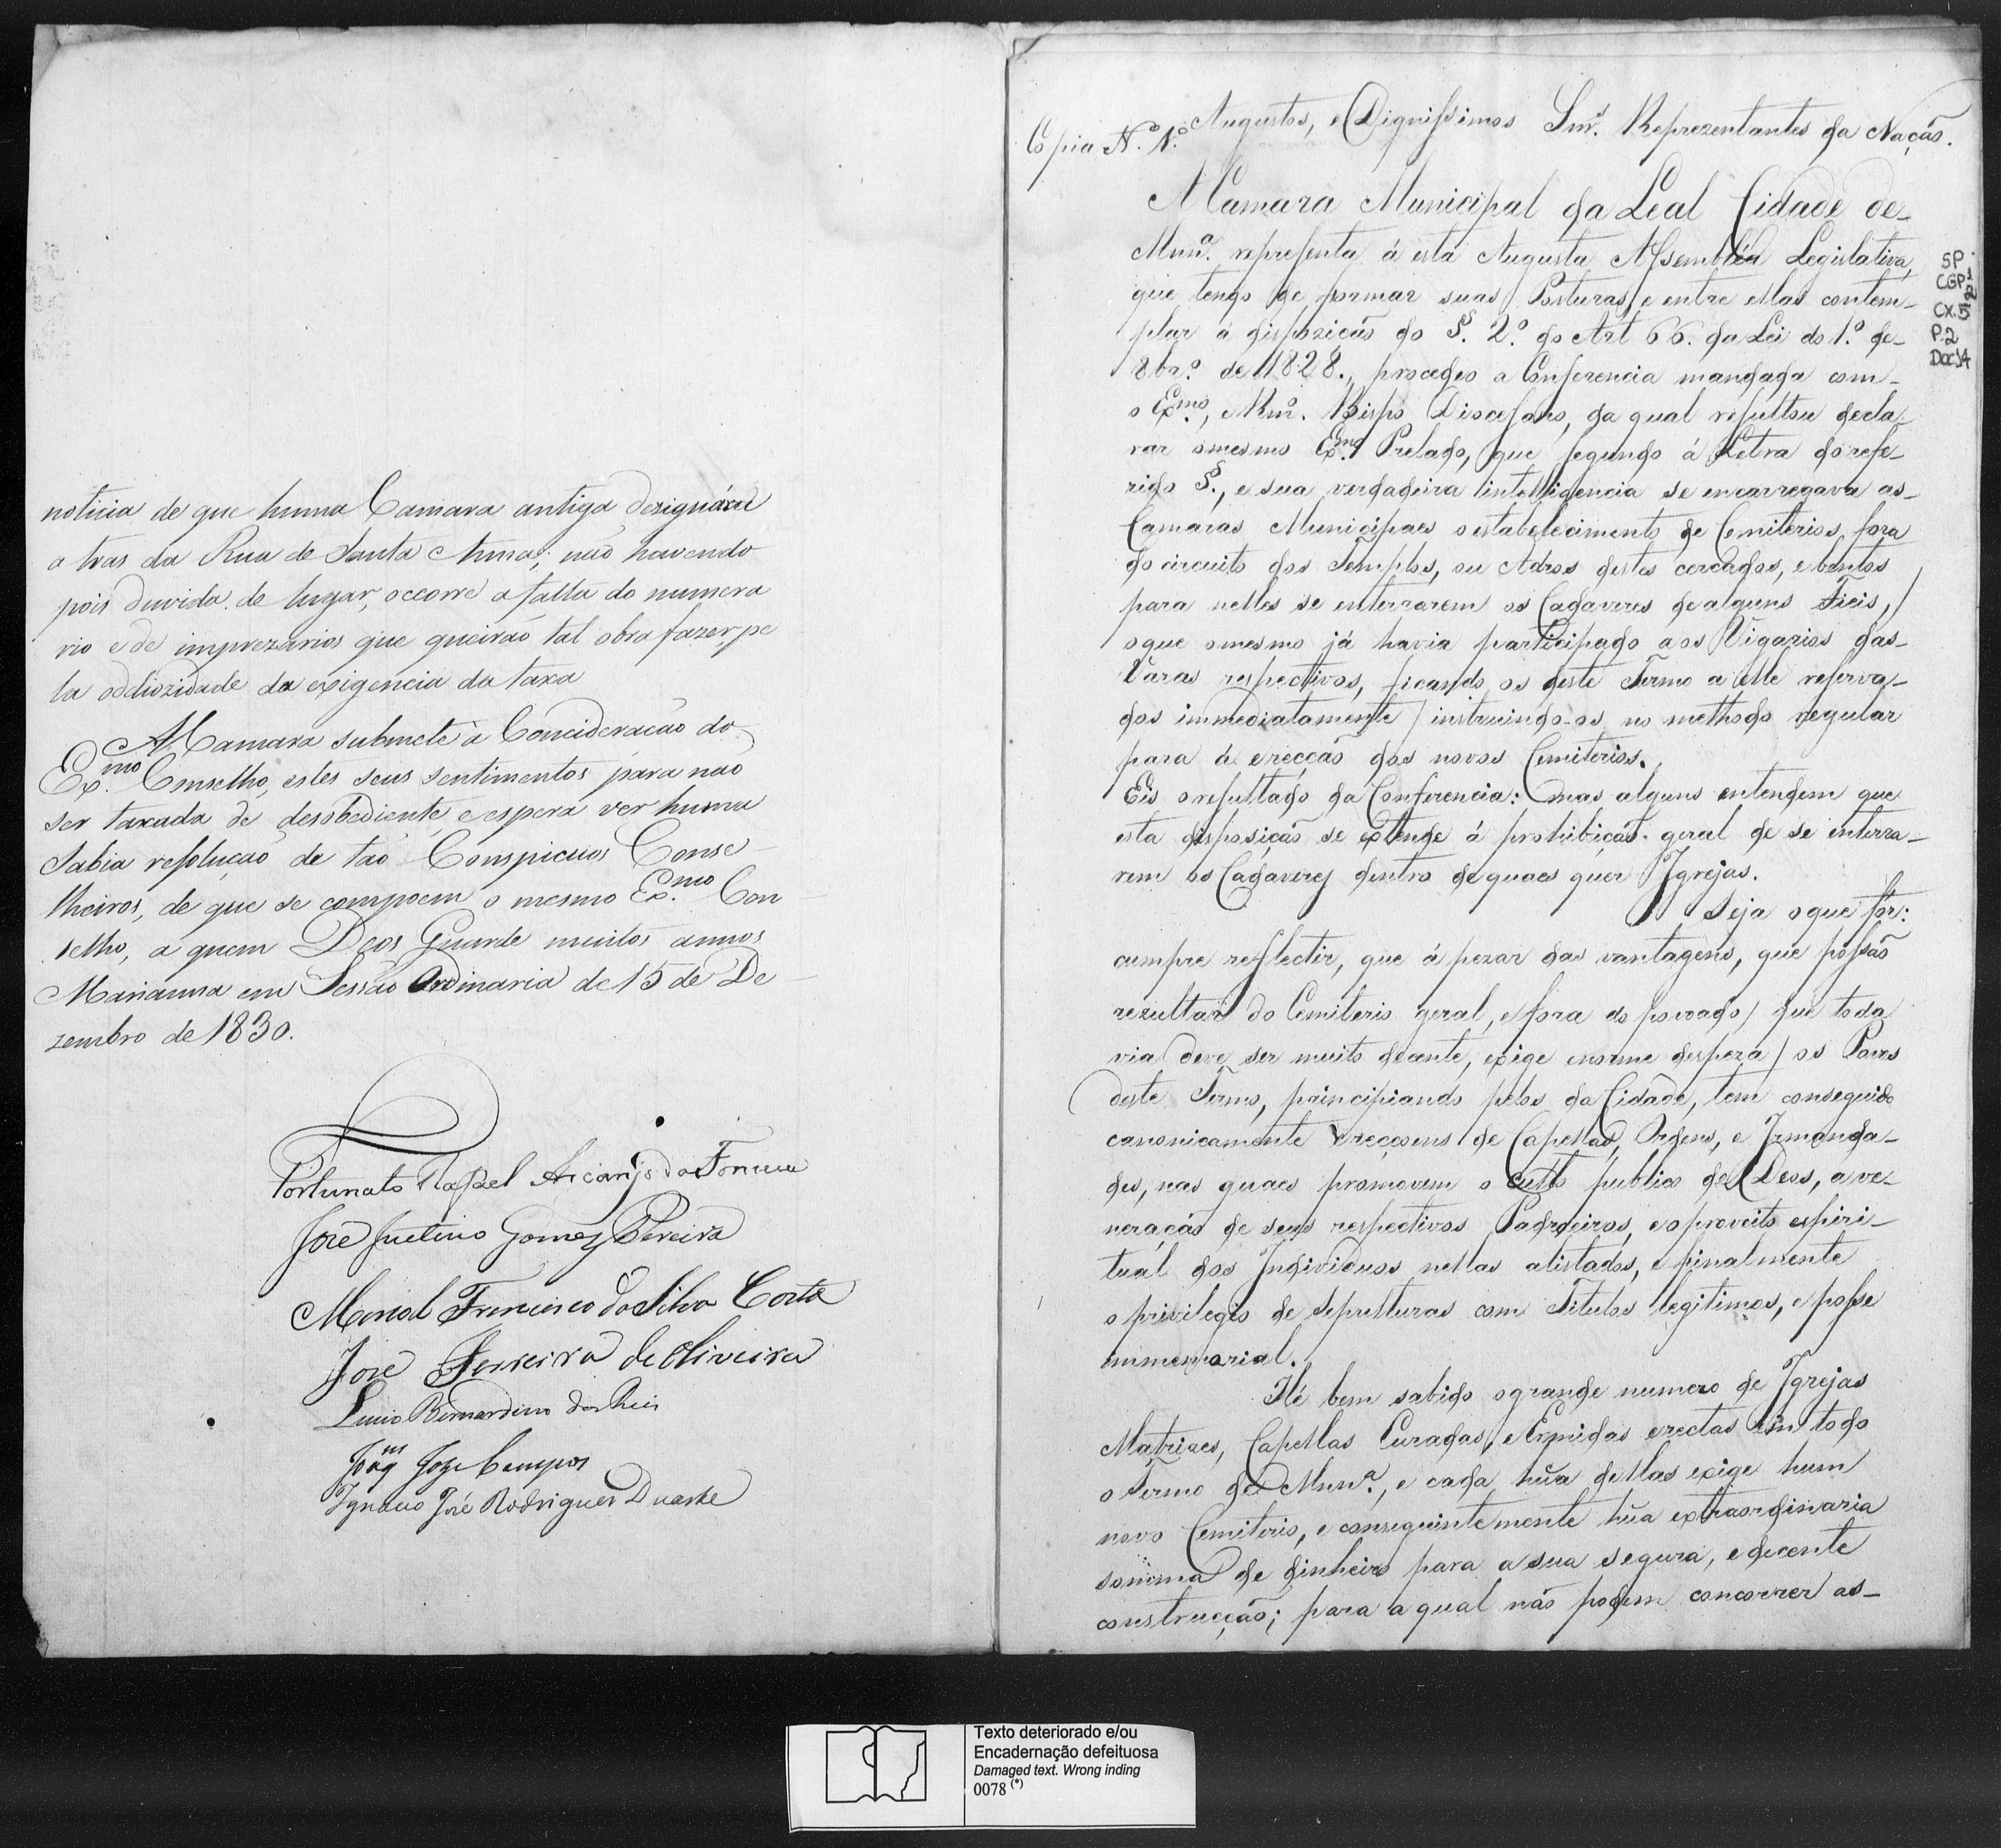 noticia de que huma Camara antiga dezignára
a tras da Rua de Santa Anna; não havendo
pois duvida de lugar, occorre a falta do numera
rio e de imprezarios que queirão tal obra fazer, pe
la oddiozidade da exigencia da taxa
A Camara submete à Concideração do
Ex.mo Conselho, estes seus sentimentos para não
ser taxada de desobediente, e espera ver huma
Sabia resolução de tão Conspicuos Conse
lheiros, de que se compoem o mesmo Ex.mo Con
selho, a quem Deos Guarde muitos annos
Marianna em Sessão Ordinaria de 15 de De
zembro de 1830.
Fortunato Rafael Arcanjo da Fonseca
José Justino Gomes Pereira
Manoel Francisco da Silva Costa
José Ferreira de Oliveira
Lucio Bernardino dos Reis
Joaq.m Joze Campos
Ignacio José Rodrigues Duarte
Copia N.º 1.º
Augustos, e Dignissimos Snr.s Reprezentantes da Nação.
A Camara Municipal da Leal Cidade de-
Mnn.a representa á esta Augusta Assembléa Legislativa,
que tendo de formar suas Posturas, e entre ellas contem-
plar a dispozição do §. 2.º do Art 66. da Lei do 1.º de-
8br.º de 1828., procedeo a Conferencia mandada com-
o Ex.mo, e Rm.º Bispo Diocesano, da qual resultou decla-
rar o mesmo Ex.mo Prelado, que segundo á Letra do refe-
rido §., e sua verdadeira intelligencia se encarregava as-
Camaras Municipaes o estabelecimento de Cemiterios fora
do circuito dos Templos, ou Adros destes cercados, e bentos
para nelles se enterrarem os Cadaveres de alguns Fieis, /
o que o mesmo já havia participado aos Vigarios das-
Varas respectivos, ficando os deste Termo a elle reserva-
dos immediatamente / instruindo-os no methodo regular
para á erecção dos novos Cemiterios.
Eis o resultado da Conferencia: mas alguns entendem que
esta disposição se extende á prohibição geral de se enterra-
rem os Cadaveres dentro de quaes quer Igrejas.
Seja o que fôr:
cumpre reflectir, que á pezar das vantagens, que possão
rezultar do Cemiterio geral, e fora do povoado / que toda
via deve ser muito decente, exige enorme despeza / os Povos
deste Termo, principiando pelos da Cidade, tem conseguido
canonicamente ereçoens de Capellas, Ordens, e Irmanda-
des, nas quaes promovem o culto publico de Deos, a ve-
neração de seus respectivos Padroeiros, e o proveito espiri-
tuál dos Individuos nellas alistados, e finalmente
o privilegio de Sepulturas com Titulos legitimos, e posse
immemorial.
Hé bem sabido o grande numero de Igrejas
Matrizes, Capellas Curadas, e Ermidas erectas em todo
o Termo de Mnn.a, e cada hũa dellas exige hum
novo Cemiterio, e conseguintemente hũa extraordinaria
somma de dinheiro para a sua segura, e decente
construcção; para a qual não podem concorrer as-
SP
CGP 1
2
CX.5
P.2
Doc 14
Texto deteriorado e/ou
Encadernação defeituosa
Damaged text. Wrong inding
0078 (*)